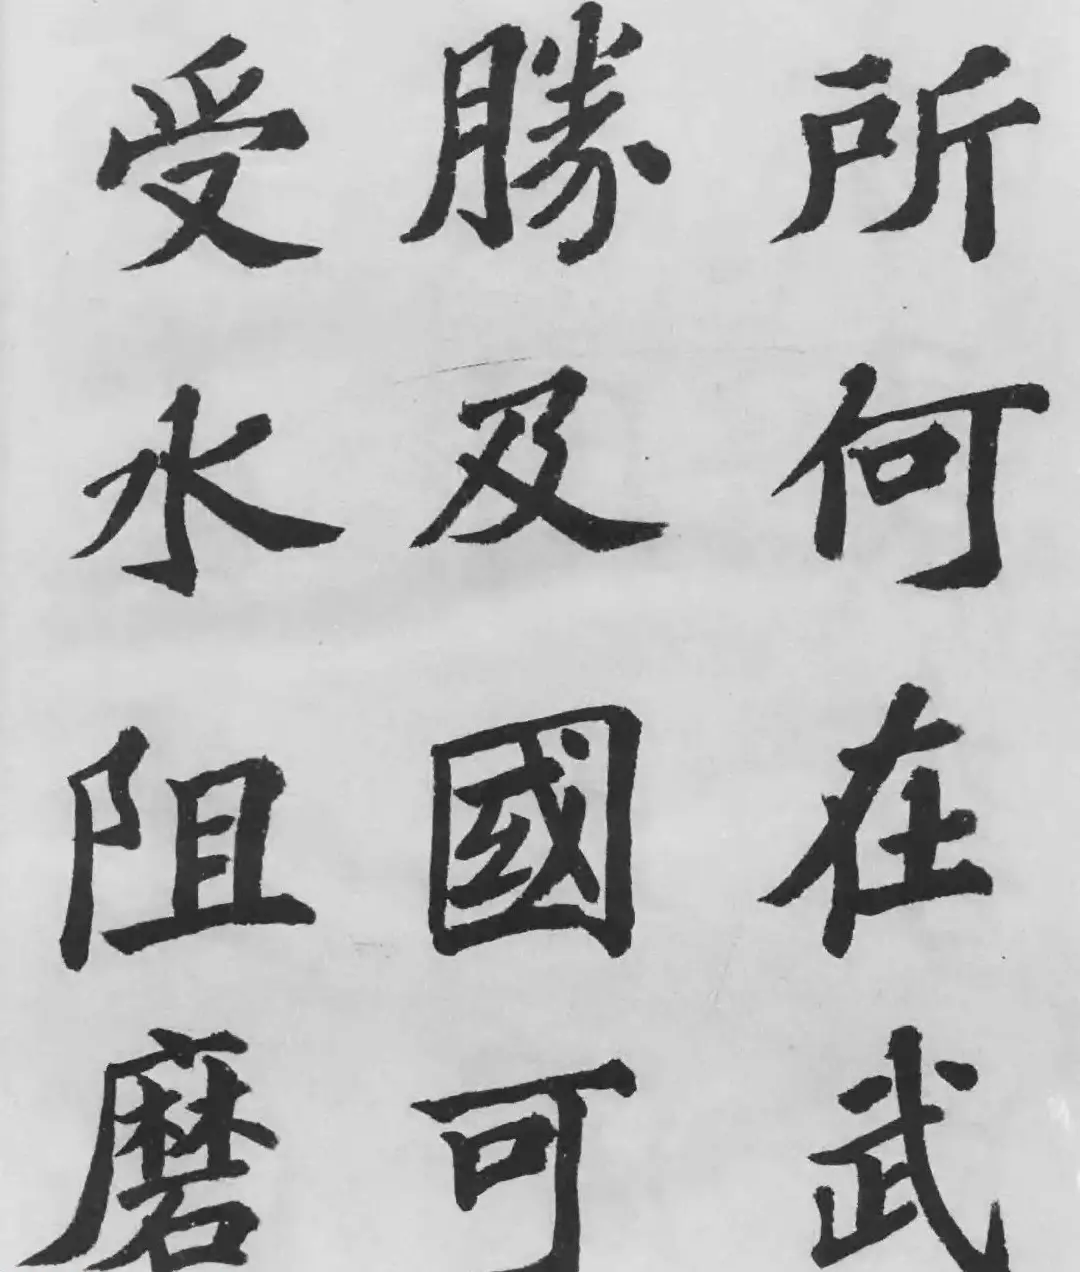 所何在武
勝及國可
受水阻磨